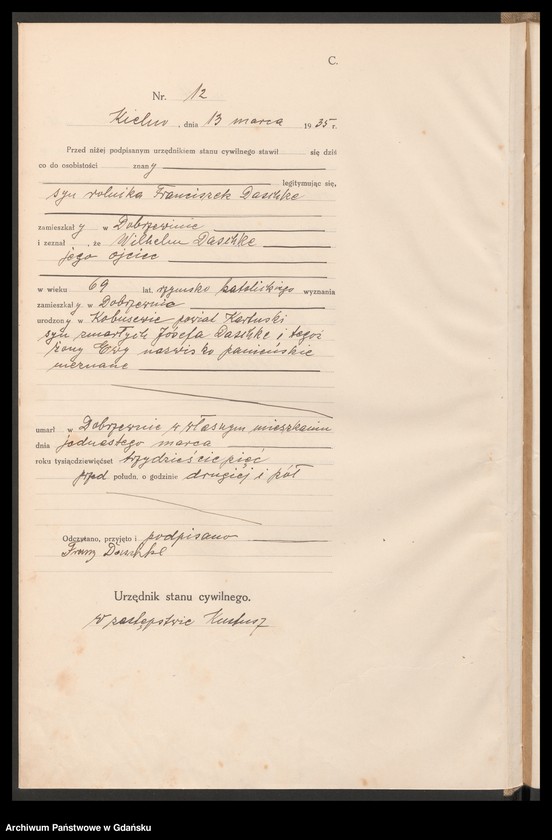 C.
Nr. 12
Kielno, dnia 13 marca 1935 r.
Przed niżej podpisanym urzędnikiem stanu cywilnego stawił się dziś
co do osobistości znany
legitymując się,
syn rolnika Franciszek Daschke
zamieszkały w Dobrzewinie
i zeznał, że Wilhelm Daschke
jego ojciec
w wieku 69 lat, rzymsko katolickiego wyznania
zamieszkały w Dobrzewinie
urodzony w Kobusewie powiat Kartuski
syn zmarłych Józefa Daschke i tegoż
żony Ewy nazwisko panieńskie
nieznane
umarł w Dobrzewnie w własnym mieszkaniu
dnia jednastego marca
roku tysiącdziewięćset trzydzieście pięć
przed połudn. o godzinie drugiej i pół
Odczytano, przyjęto i podpisano
Franz Daschke
Urzędnik stanu cywilnego.
W zastępstwie
Archiwum Państwowe w Gdańsku